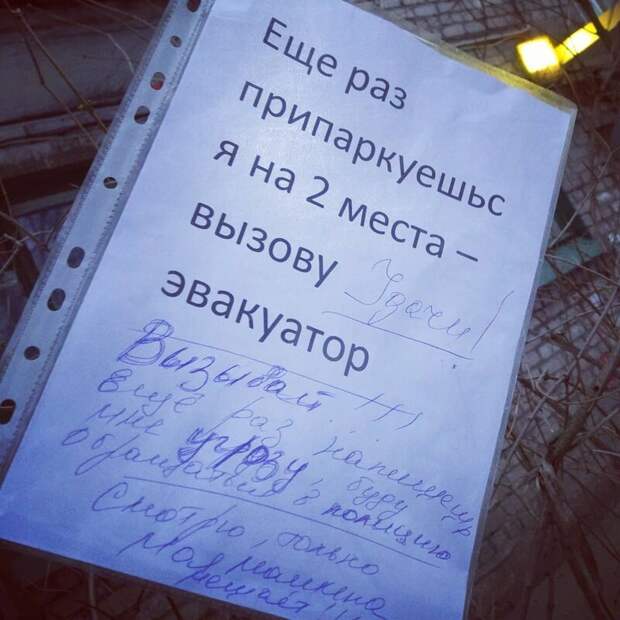 Еще раз
припаркуешьс
я на 2 места –
вызову
Удачи!
эвакуатор
Вызывай!!!
Еще раз напишешь
мне угрозу, буду
обращаться в полицию
Смотрю, только
моя машина
мешает!!!